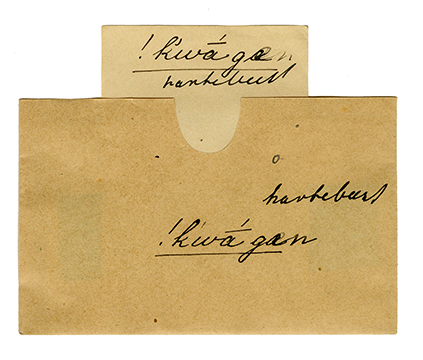 !k'wā́ gen
hartebeest
hartebeest
!k'wā́ gen